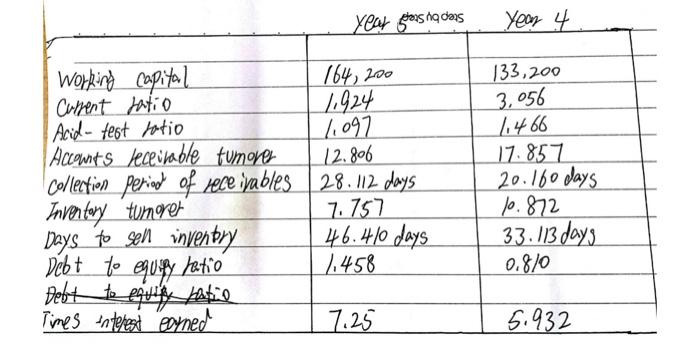 Year 5 Year 4
Working capital 164,200 133,200
Current ratio 1.924 3,056
Acid-test ratio 1.097 1.466
Accounts receivable turnover 12.806 17.857
Collection period of receivables 28.112 days 20.160 days
Inventory turnover 7.757 10.872
Days to sell inventory 46.410 days 33.113 days
Debt to equity ratio 1.458 0.810
Debt to equity ratio
Times interest earned 7.25 5.932